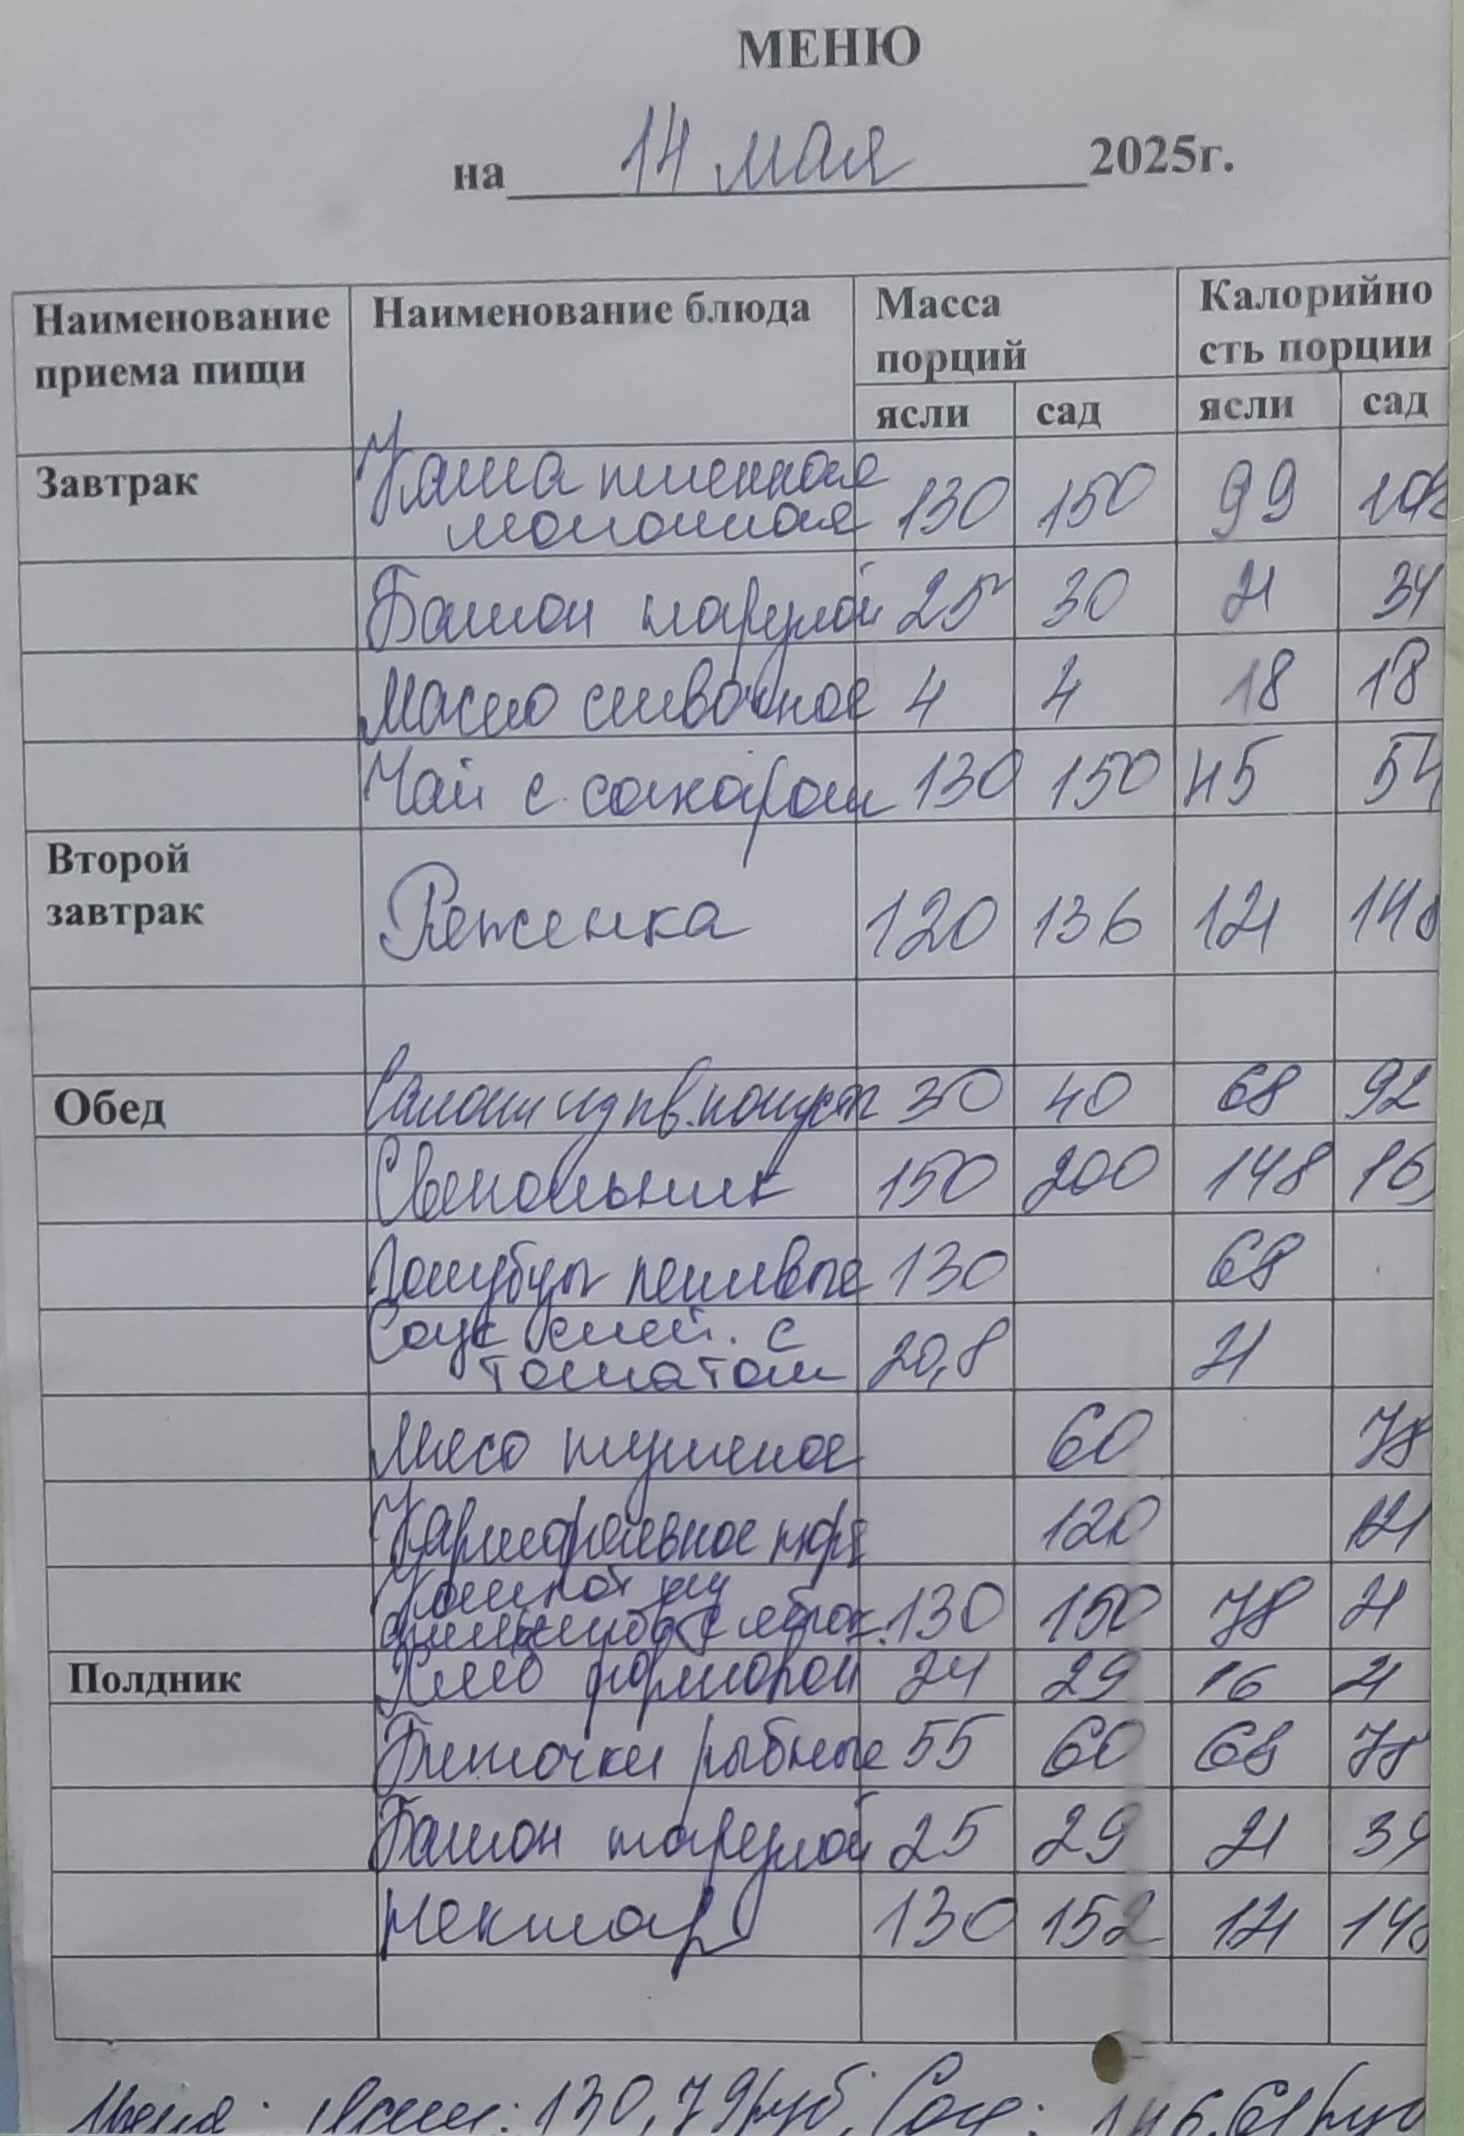 МЕНЮ
на 14 мая 2025г.
Наименование приема пищи Наименование блюда Масса порций Калорийно сть порции
ясли сад ясли сад
Завтрак Каша пшенная молочная 130 150 99
Батон нарезной 25 30 21 34
Масло сливочное 4 4 18 18
Чай с сахаром 130 150 45 54
Второй завтрак Ряженка 120 136 121 148
Обед Салат из кв. капуст 30 40 68 92
Свекольник 150 200 148 16
Голубцы ленивые 130 68
Соус смет. с томатом 20,8 21
Мясо тушеное 60 78
Картофельное пюре 120 121
Компот яблок. 130 150 78 21
Полдник Хлеб формовой 24 29 16 21
Биточки рыбные 55 60 68 78
Батон нарезной 25 29 21 34
Нектар 130 152 121 148
Цена: Ясли: 130,79руб. Сад: 146,61руб